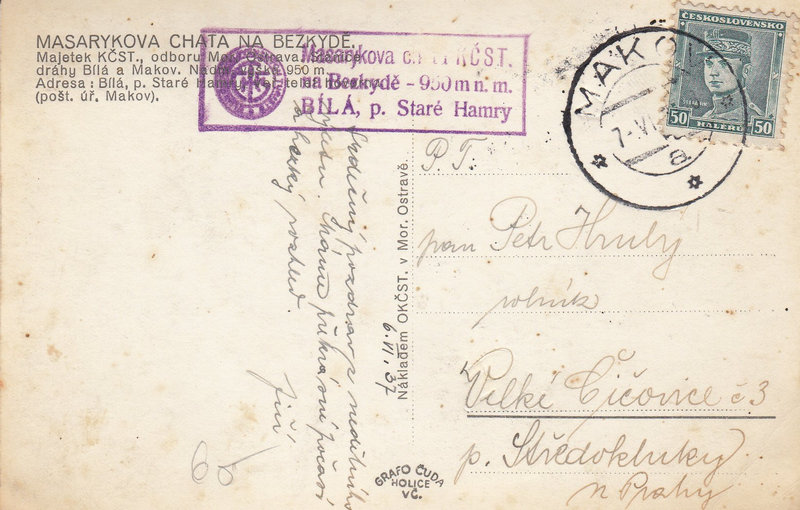 MASARYKOVA CHATA NA BEZKYDĚ.
Majetek KČST., odboru Mor. Ostrava. Stanice
dráhy Bílá a Makov. Nadm. 950 m.
Adresa: Bílá, p. Staré Hamry,
(pošt. úř. Makov).
Masarykova chata KČST.
na Bezkydě - 950 m n. m.
BÍLÁ, p. Staré Hamry
MAKOV
7-VI
a
ČESKOSLOVENSKO
50 HALÉŘŮ 50
Srdečný pozdrav z nedělního
výletu. Máme překrásné počasí
a hezký rozhled.
Jiří
6. VI. 37
Nákladem OKČST. v Mor. Ostravě.
P. T.
pan Petr Hrubý
rolník
Velké Čičovice č 3
p. Středokluky
u Prahy
GRAFO ČUDA
HOLICE
VČ.